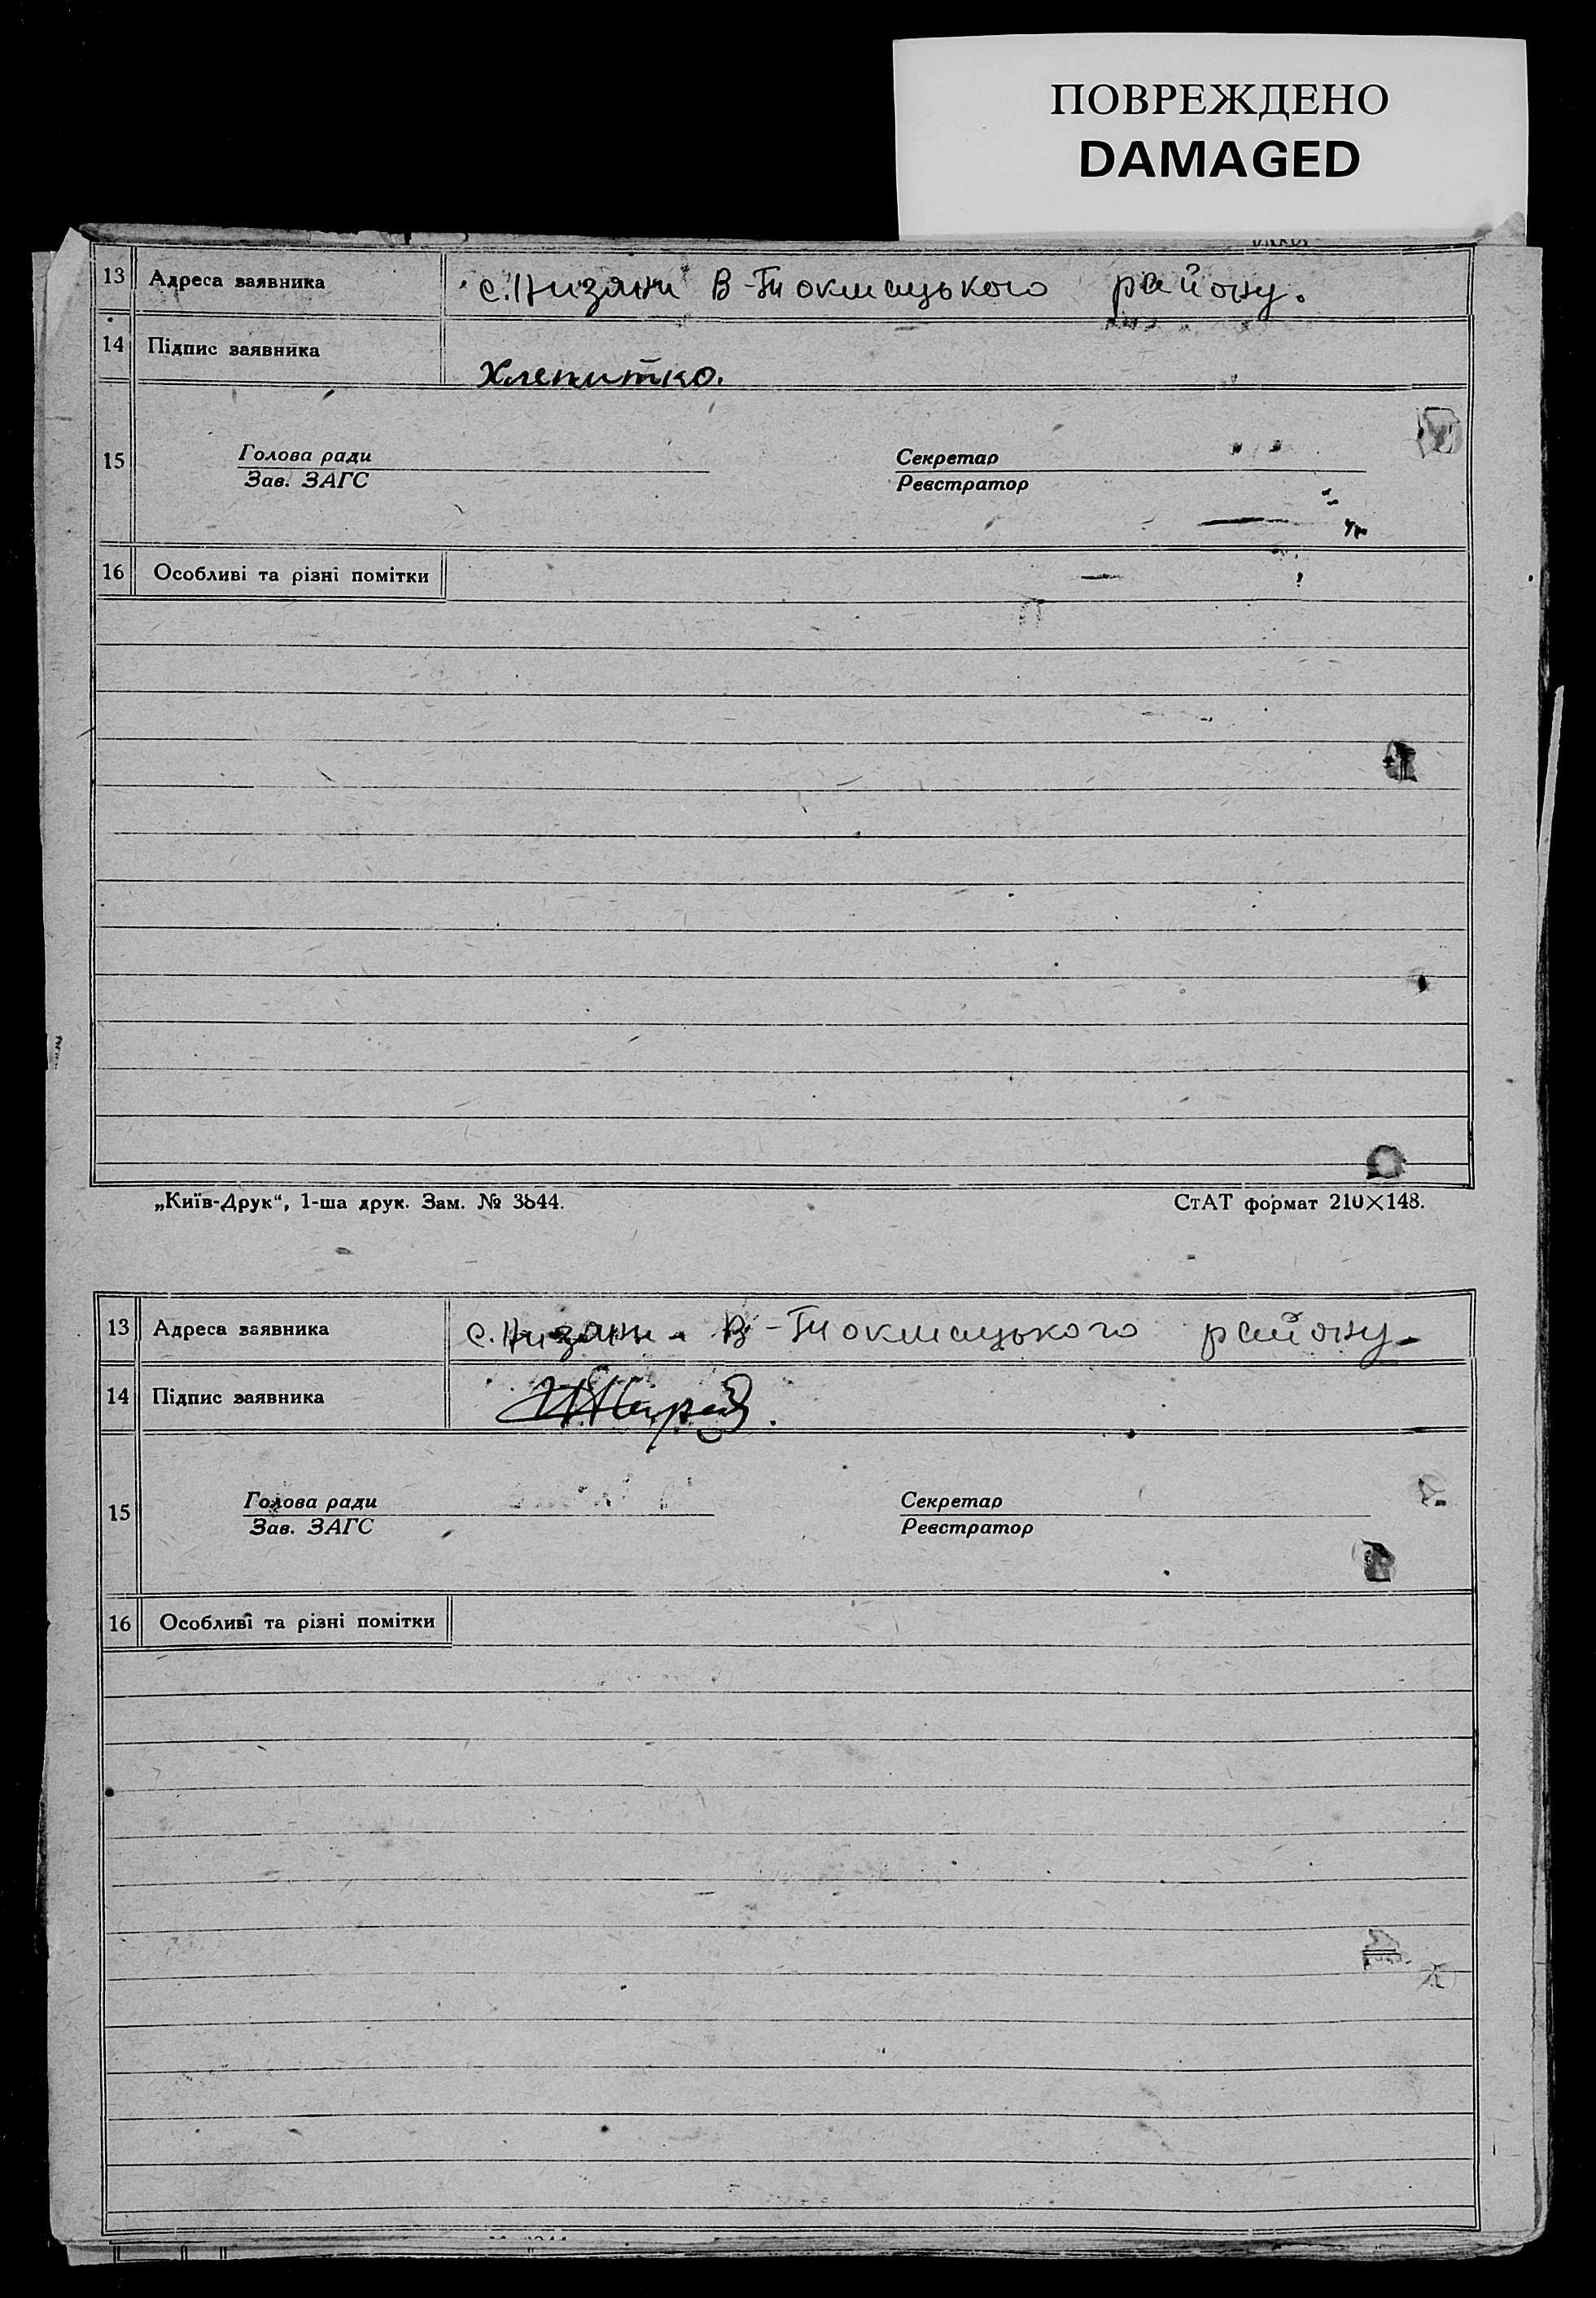 ПОВРЕЖДЕНО
DAMAGED
13 Адреса заявника с. Низяни В-Токмацького району.
14 Підпис заявника Хлепитко.
15 Голова ради Секретар
Зав. ЗАГС Реєстратор
16 Особливі та різні помітки
„Київ-Друк“, 1-ша друк. Зам. № 3844. СтАТ формат 210×148.
13 Адреса заявника с. Низяни В-Токмацького району
14 Підпис заявника
15 Голова ради Секретар
Зав. ЗАГС Реєстратор
16 Особливі та різні помітки